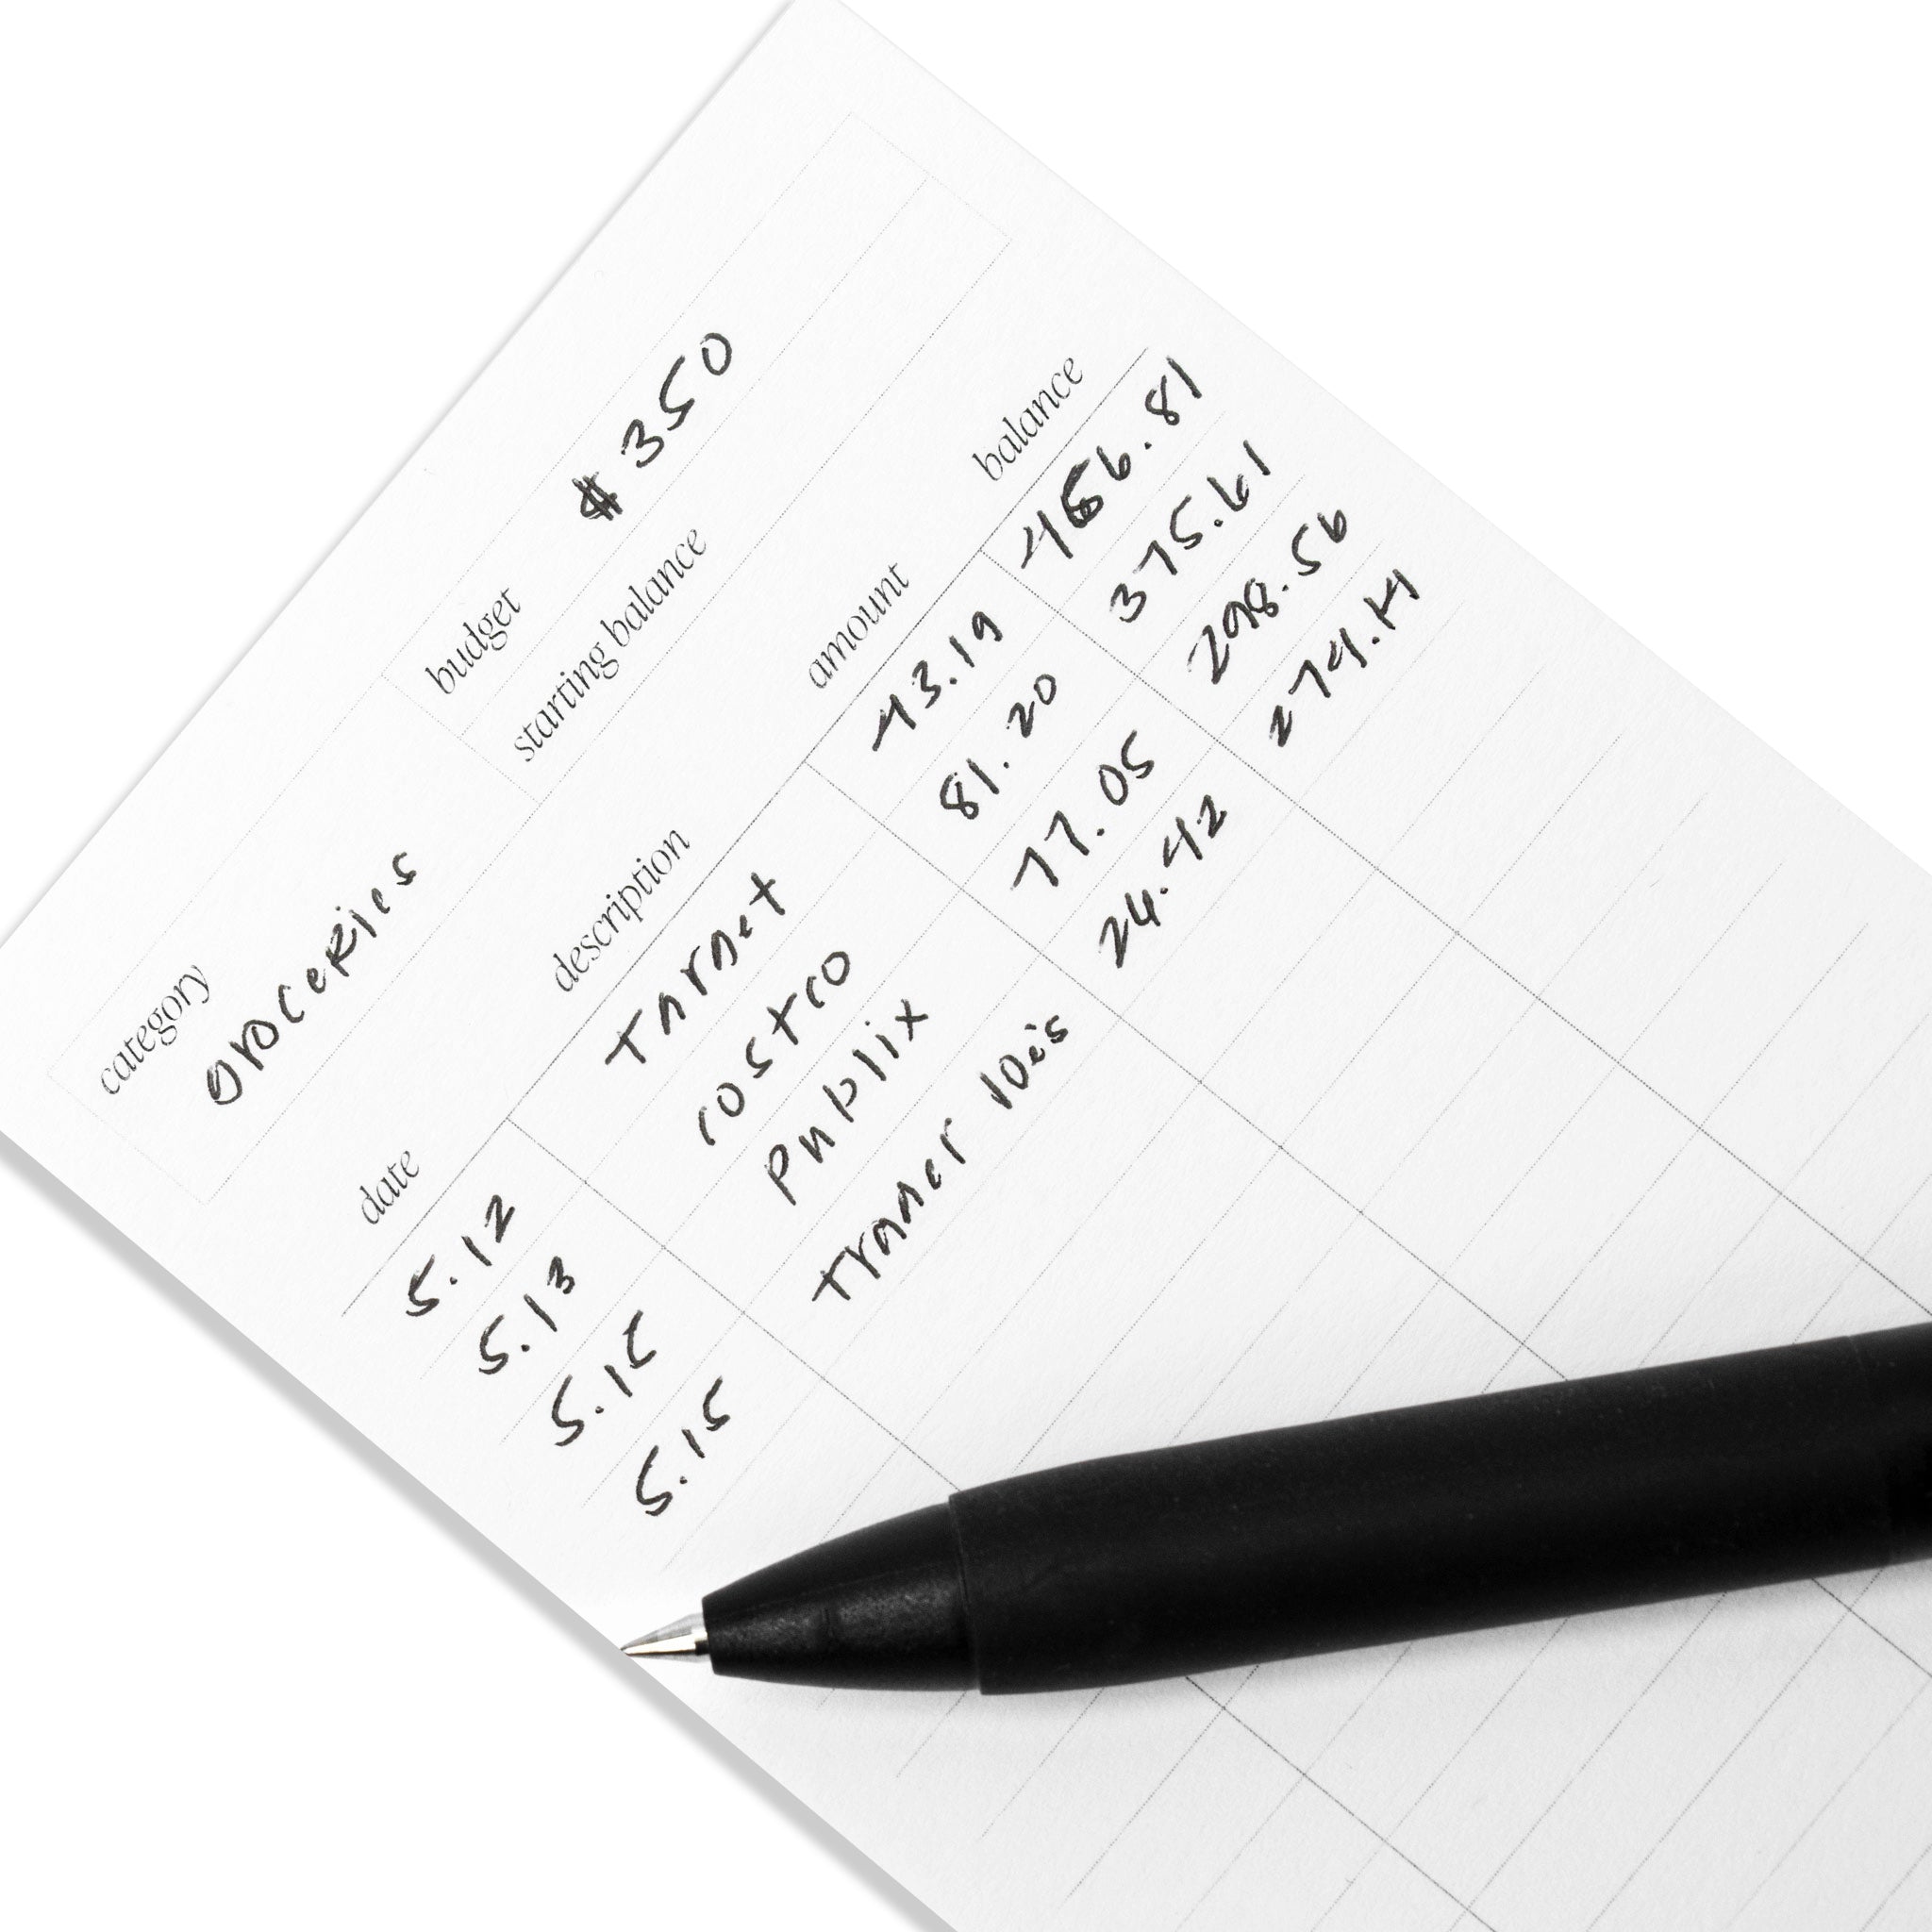 category
groceries
budget $350
starting balance
date description amount balance
5.12 Target 43.19 456.81
5.13 costco 81.20 375.61
5.15 Publix 77.05 298.56
5.15 Trader Joe's 24.42 274.14